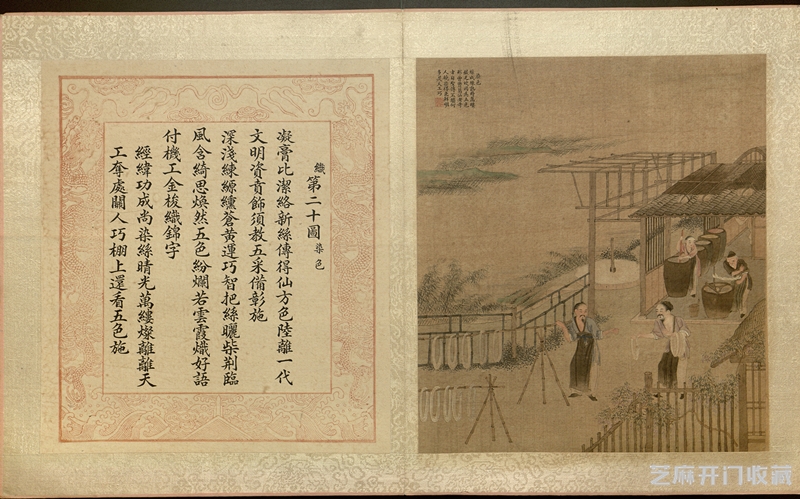 織第二十圖染色
凝膏比潔絡新絲傳得仙方色陸離一代
文明資賁飾須教五采備彰施
深淺練縓纁蒼黃運巧智把絲曬柴荆臨
風含綺思煥然五色紛爛若雲霞熾好語
付機工金梭織錦字
經緯功成尚染絲晴光萬縷燦離離天
工奪處關人巧棚上還看五色施
染色
芝麻开门收藏